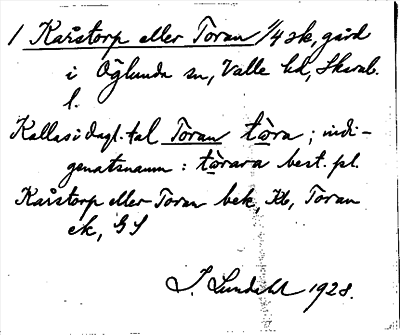 1 Karstorp eller Toran 1/4 sk, gård
i Öglunda sn, Valle hd, Skarab.
l.
Kallas i dagl. tal Toran tòra; indi-
genatsnamn: tòrara best. pl.
Karstorp eller Toran bek, Kb, Toran
ek, GS
I. Lundahl 1928.